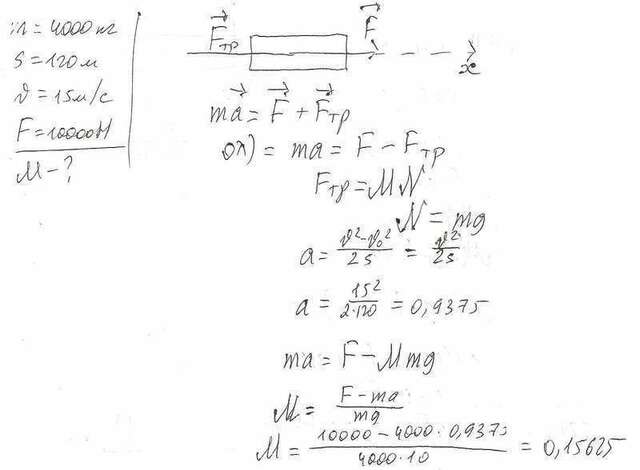 m = 4000 кг
S = 120 м
υ = 15 м/с
F = 10000 Н
М - ?
Fтр F
x
ma = F + Fтр
ох) = ma = F - Fтр
Fтр = МN
N = mg
a = υ²-υ₀²/2s = υ²/2s
a = 15²/2·120 = 0,9375
ma = F - Мmg
М = F - ma/mg
М = 10000 - 4000 · 0,9375/4000·10 = 0,15625